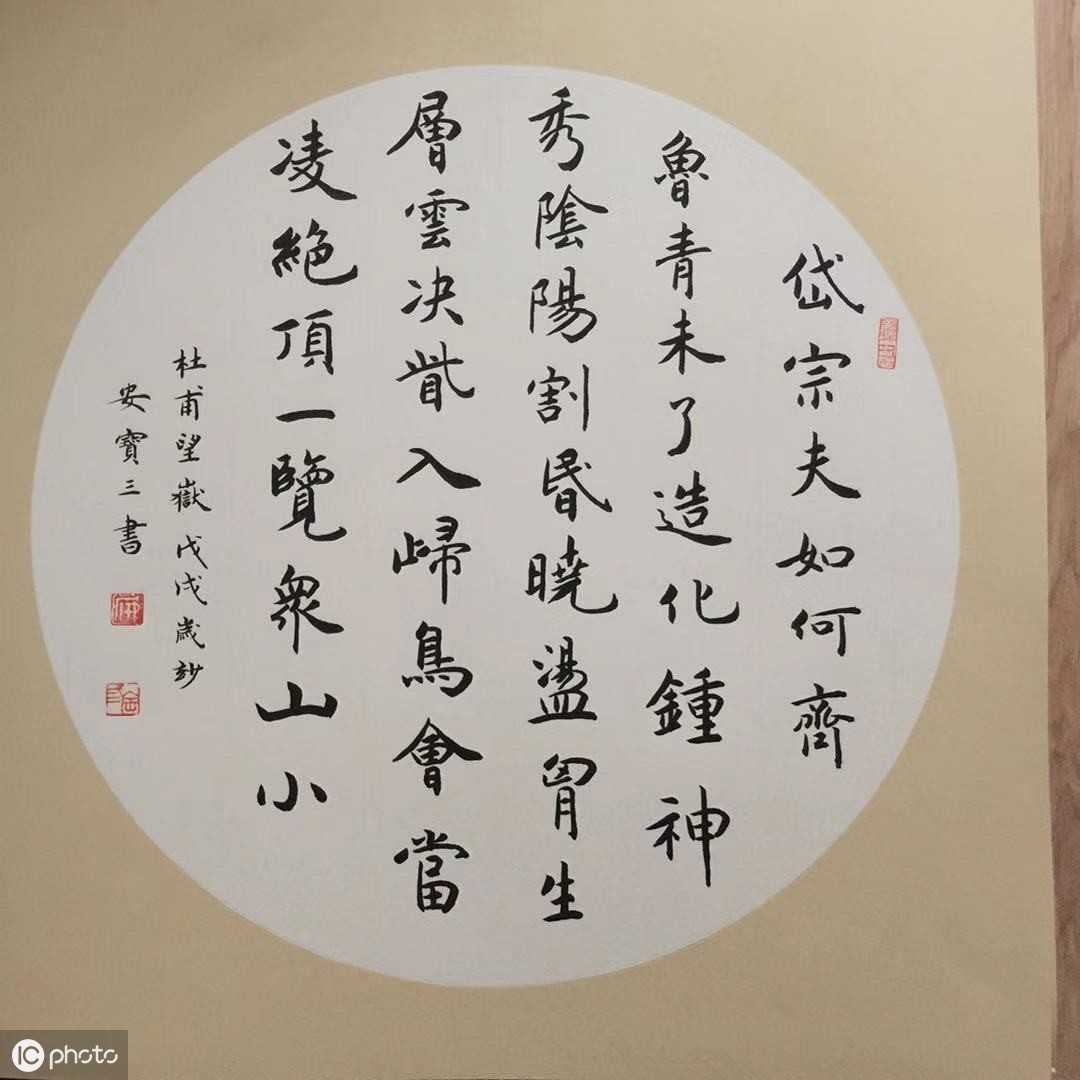 岱宗夫如何齊
魯青未了造化鍾神
秀陰陽割昬曉盪胷生
層雲决眥入歸鳥會當
凌絶頂一覽衆山小
杜甫望嶽戊戌歲杪
安寶三書
IC photo